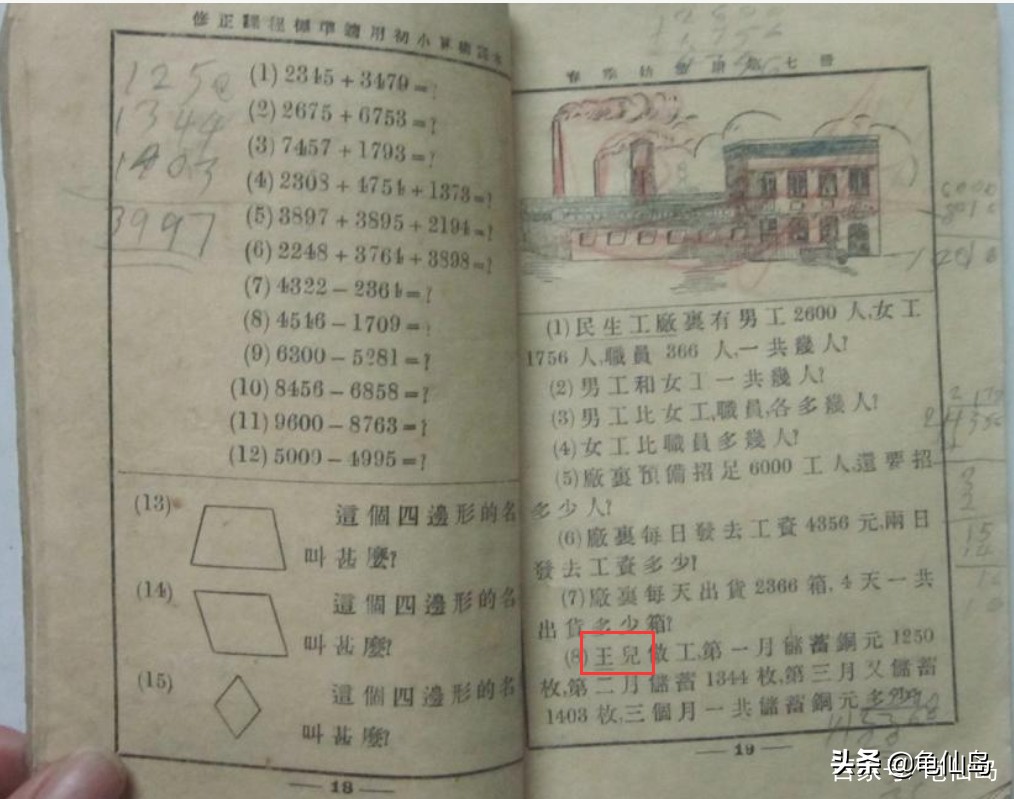 修正課程標準適用初小算術課本
1250
1344
1403
3997
(1) 2345+3479=?
(2) 2675+6753=?
(3) 7457+1793=?
(4) 2308+4754+1373=?
(5) 3897+3895+2194=?
(6) 2248+3764+3898=?
(7) 4322-2364=?
(8) 4546-1709=?
(9) 6300-5281=?
(10) 8456-6858=?
(11) 9600-8763=?
(12) 5000-4995=?
(13) 這個四邊形的名
叫甚麼?
(14) 這個四邊形的名
叫甚麼?
(15) 這個四邊形的名
叫甚麼?
18
春季始業用第七冊
(1)民生工廠裏有男工2600人,女工
1756人,職員 366 人,一共幾人?
(2)男工和女工一共幾人?
(3)男工比女工,職員,各多幾人?
(4)女工比職員多幾人?
(5)廠裏預備招足6000工人,還要招
多少人?
(6)廠裏每日發去工資4356元,兩日
發去工資多少?
(7)廠裏每天出貨2366箱,4天一共
出貨多少箱?
(8)王兒做工,第一月儲蓄銅元1250
枚,第二月儲蓄1344枚,第三月又儲蓄
1403枚,三個月一共儲蓄銅元多少?
19
头条@龟仙岛